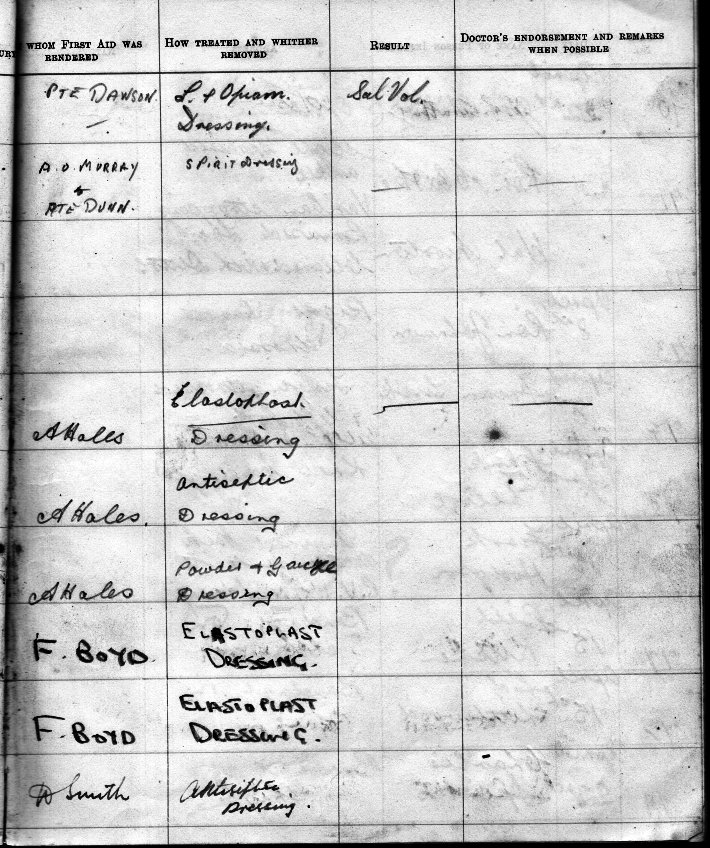 WHOM FIRST AID WAS
RENDERED
HOW TREATED AND WHITHER
REMOVED
RESULT
DOCTOR'S ENDORSEMENT AND REMARKS
WHEN POSSIBLE
PTE DAWSON.
L. & Opium.
Dressing.
Sal Vol.
A. O. MURRAY
&
PTE DUNN.
SPIRIT Dressing
A Hales
Elastoplast
Dressing
A Hales.
Antiseptic
Dressing
A Hales
Powder & Gauze
Dressing
F. BOYD.
ELASTOPLAST
DRESSING.
F. BOYD
ELASTOPLAST
DRESSING.
Smith
Antiseptic
Dressing.